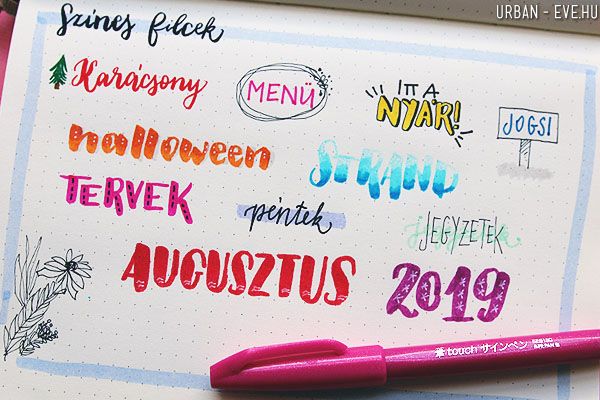 URBAN - EVE.HU
Színes filcek
Karácsony
MENÜ
ITT A
NYÁR!
JOGSI
halloween
STRAND
TERVEK
péntek
JEGYZETEK
AUGUSZTUS
2019
touch サインペン